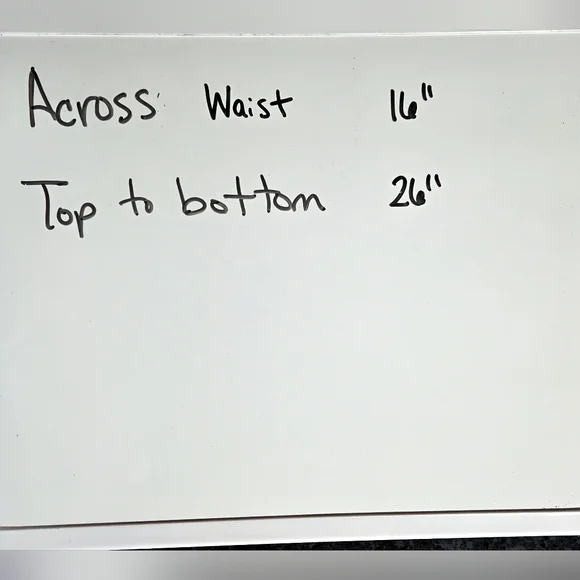 Across Waist 16"
Top to bottom 26"